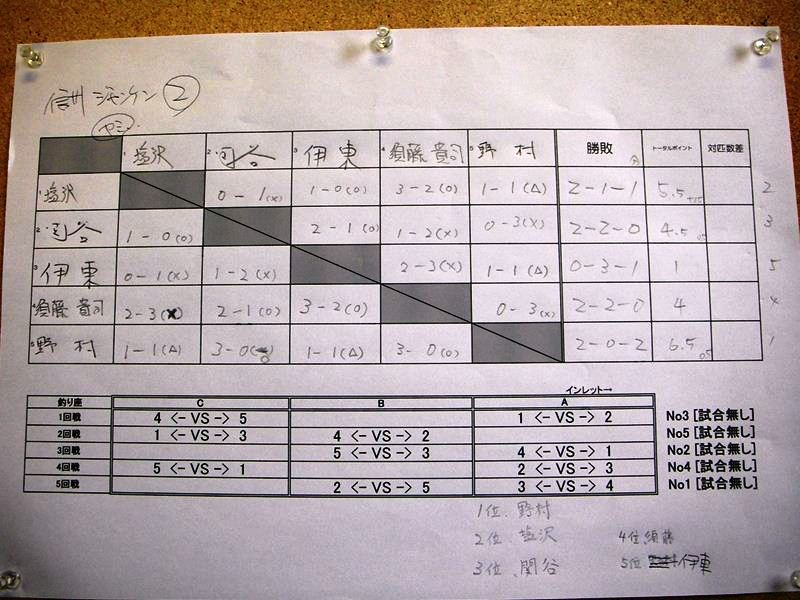 信州 シモンケン ②
1 塩沢 2 関谷 3 伊東 4 須藤 貴司 5 野村 勝敗 トータルポイント 対匹数差
1 塩沢 0-1(x) 1-0(o) 3-2(o) 1-1(△) 2-1-1 5.5 2
2 関谷 1-0(o) 2-1(o) 1-2(x) 0-3(x) 2-2-0 4.5 3
3 伊東 0-1(x) 1-2(x) 2-3(x) 1-1(△) 0-3-1 1 5
4 須藤 貴司 2-3(x) 2-1(o) 3-2(o) 0-3(x) 2-2-0 4 4
5 野村 1-1(△) 3-0 1-1(△) 3-0(o) 2-0-2 6.5 1
インレット→
釣り座 C B A
1回戦 4 <- VS -> 5 1 <- VS -> 2 No3 [試合無し]
2回戦 1 <- VS -> 3 4 <- VS -> 2 No5 [試合無し]
3回戦 5 <- VS -> 3 4 <- VS -> 1 No2 [試合無し]
4回戦 5 <- VS -> 1 2 <- VS -> 3 No4 [試合無し]
5回戦 2 <- VS -> 5 3 <- VS -> 4 No1 [試合無し]
1位、野村
2位 塩沢 4位 須藤
3位、関谷 5位 伊東